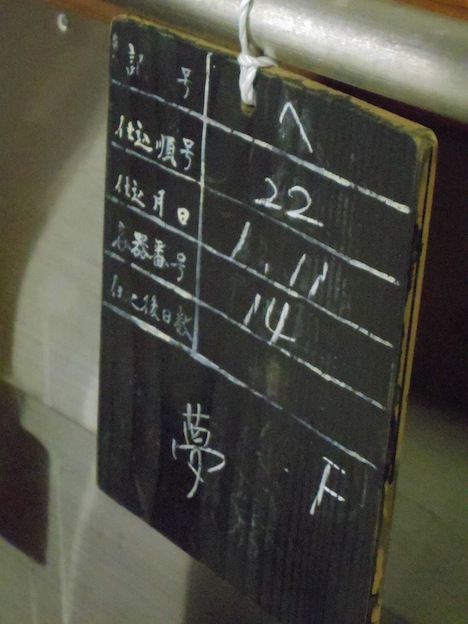 記号 へ
仕込順号 22
仕込月日 1.11
容器番号 14
仕込後日数
夢 下